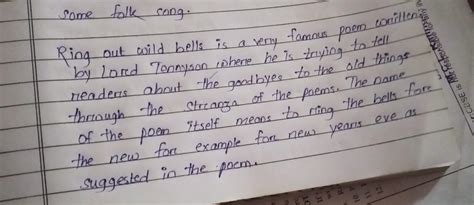 some folk song.
Ring out wild bells is a very famous poem written
by Lord Tonnyson where he is trying to tell
readers about the goodbyes to the old things
through the stranza of the poems. The name
of the poem itself means to ring the bells fore
the new fore example fore new years eve as
suggested in the poem.